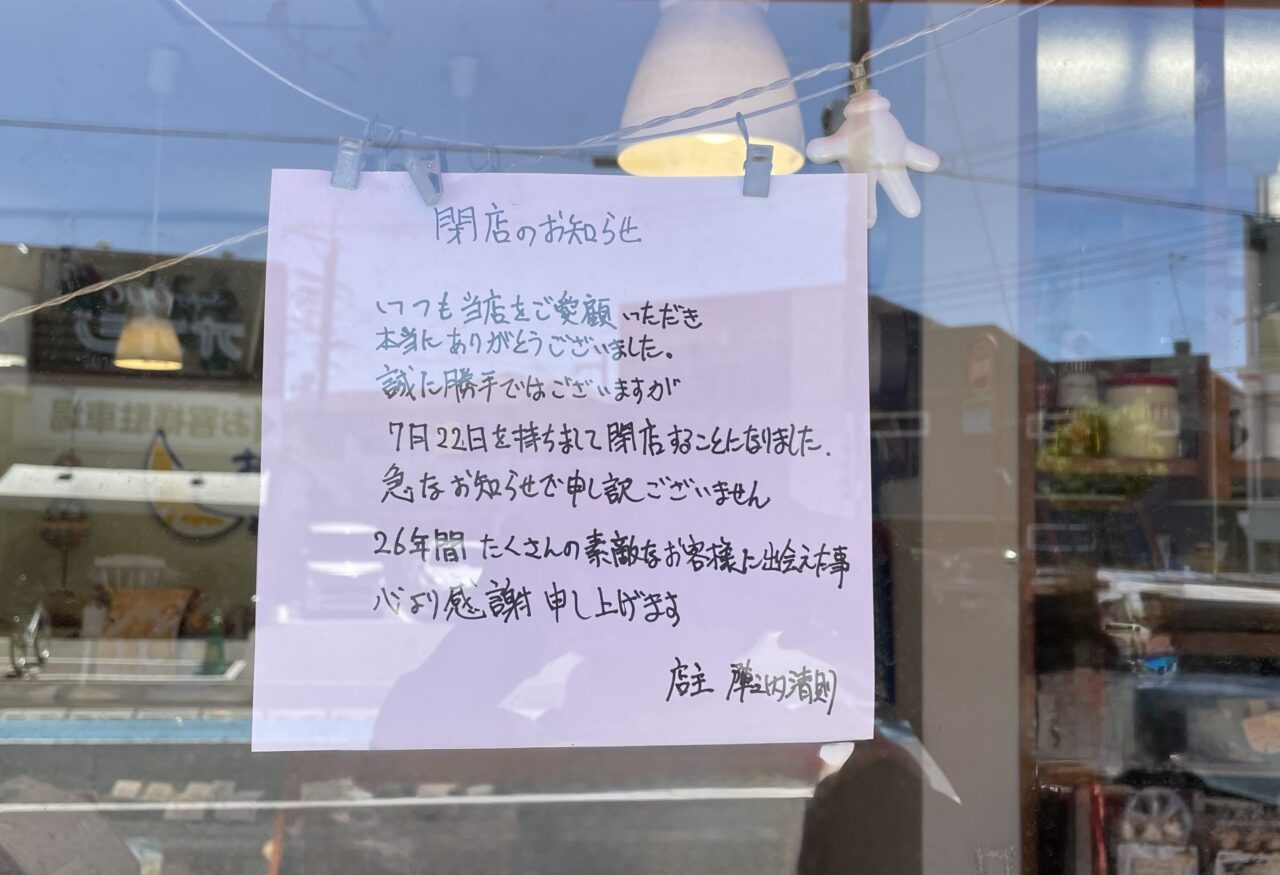 閉店のお知らせ
いつも当店をご愛顧いただき
本当にありがとうございました。
誠に勝手ではございますが
7月22日を持ちまして閉店することになりました.
急なお知らせで申し訳ございません
26年間 たくさんの素敵なお客様に出会えた事
心より感謝申し上げます
店主 陣之内清則
お客様駐車場